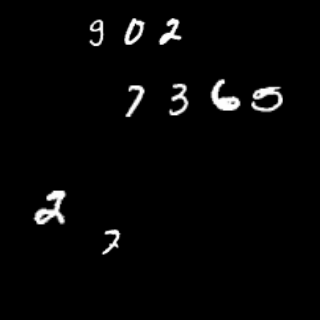 902
7365
2
7